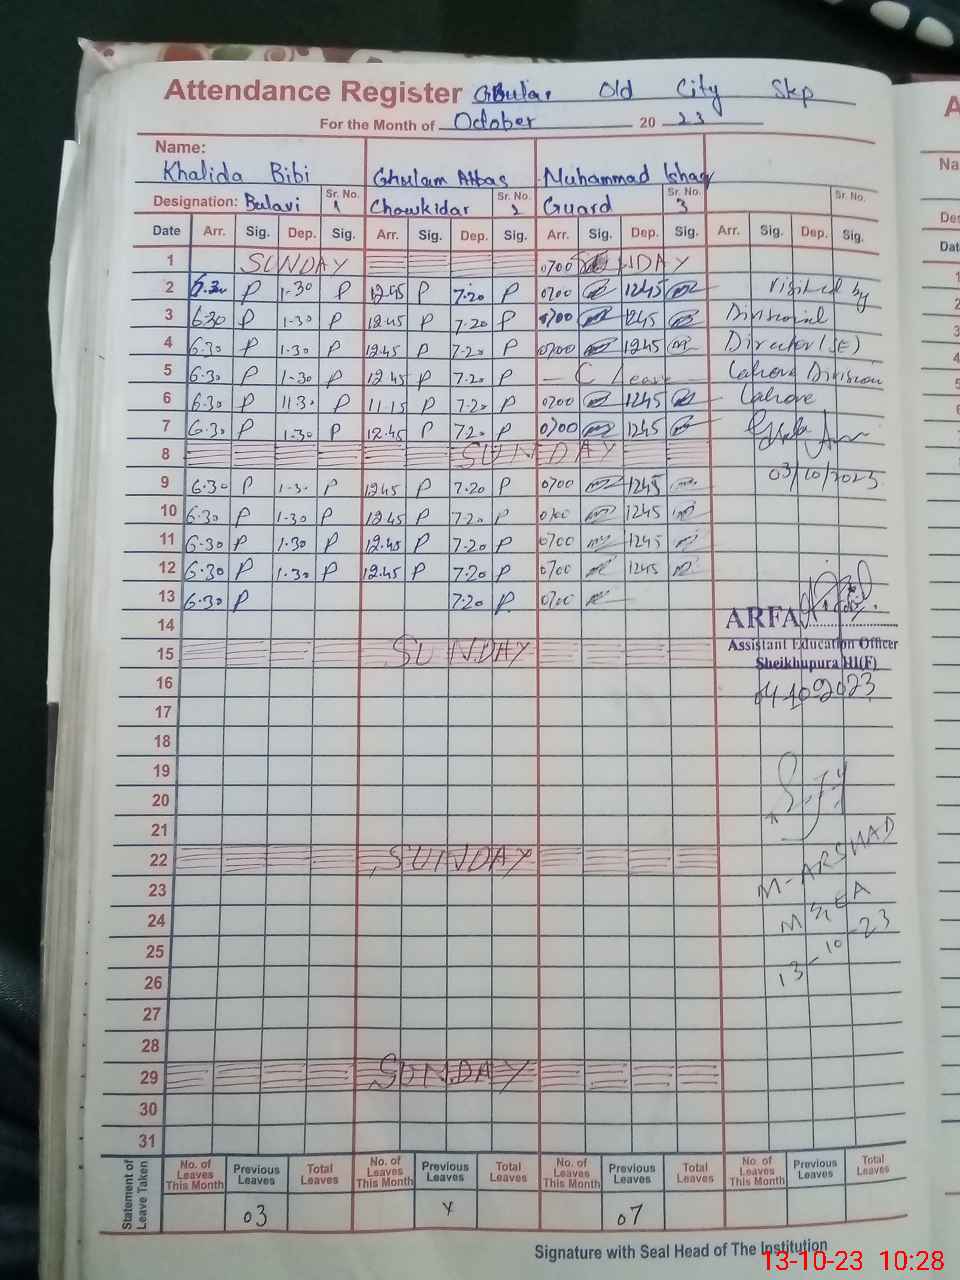 Attendance Register GBular Old City Skp
For the Month of October 20 23
Name:
Khalida Bibi Ghulam Abbas Muhammad Ishaq
Designation: Bulavi Sr. No. 1 Chowkidar Sr. No. 2 Guard Sr. No. 3 Sr. No.
Date Arr. Sig. Dep. Sig. Arr. Sig. Dep. Sig. Arr. Sig. Dep. Sig. Arr. Sig. Dep. Sig.
1 SUNDAY 0700 NDAY
2 6.30 P 1-30 P 12.45 P 7.20 P 0700 1245 visited by
3 6.30 P 1-30 P 12.45 P 7.20 P 0700 1245 Divisional
4 6.30 P 1.30 P 12.45 P 7.20 P 0700 1245 Director (SE)
5 6.30 P 1-30 P 12.45 P 7.20 P C Leave Lahore Division
6 6.30 P 11.30 P 11.15 P 7.20 P 0700 1245 Lahore
7 6.30 P 1.30 P 12.45 P 7.20 P 0700 1245
8 SUNDAY
03/10/2023
9 6.30 P 1-30 P 1245 P 7.20 P 0700 1245
10 6.30 P 1-30 P 12.45 P 7.20 P 0700 1245
11 6.30 P 1.30 P 12.45 P 7.20 P 0700 1245
12 6.30 P 1.30 P 12.45 P 7.20 P 0700 1245
13 6.30 P 7.20 P 0700
ARFA
14
Assistant Education Officer
15 SUNDAY
Sheikhupura HI(F)
16
04-10-2023
17
18
19
20
21
22 SUNDAY
M-ARSHAD
23
MEA
24
13-10-23
25
26
27
28
29 SUNDAY
30
31
Statement of Leave Taken
No. of Leaves This Month Previous Leaves Total Leaves No. of Leaves This Month Previous Leaves Total Leaves No. of Leaves This Month Previous Leaves Total Leaves No. of Leaves This Month Previous Leaves Total Leaves
03 x 07
Signature with Seal Head of The Institution
13-10-23 10:28